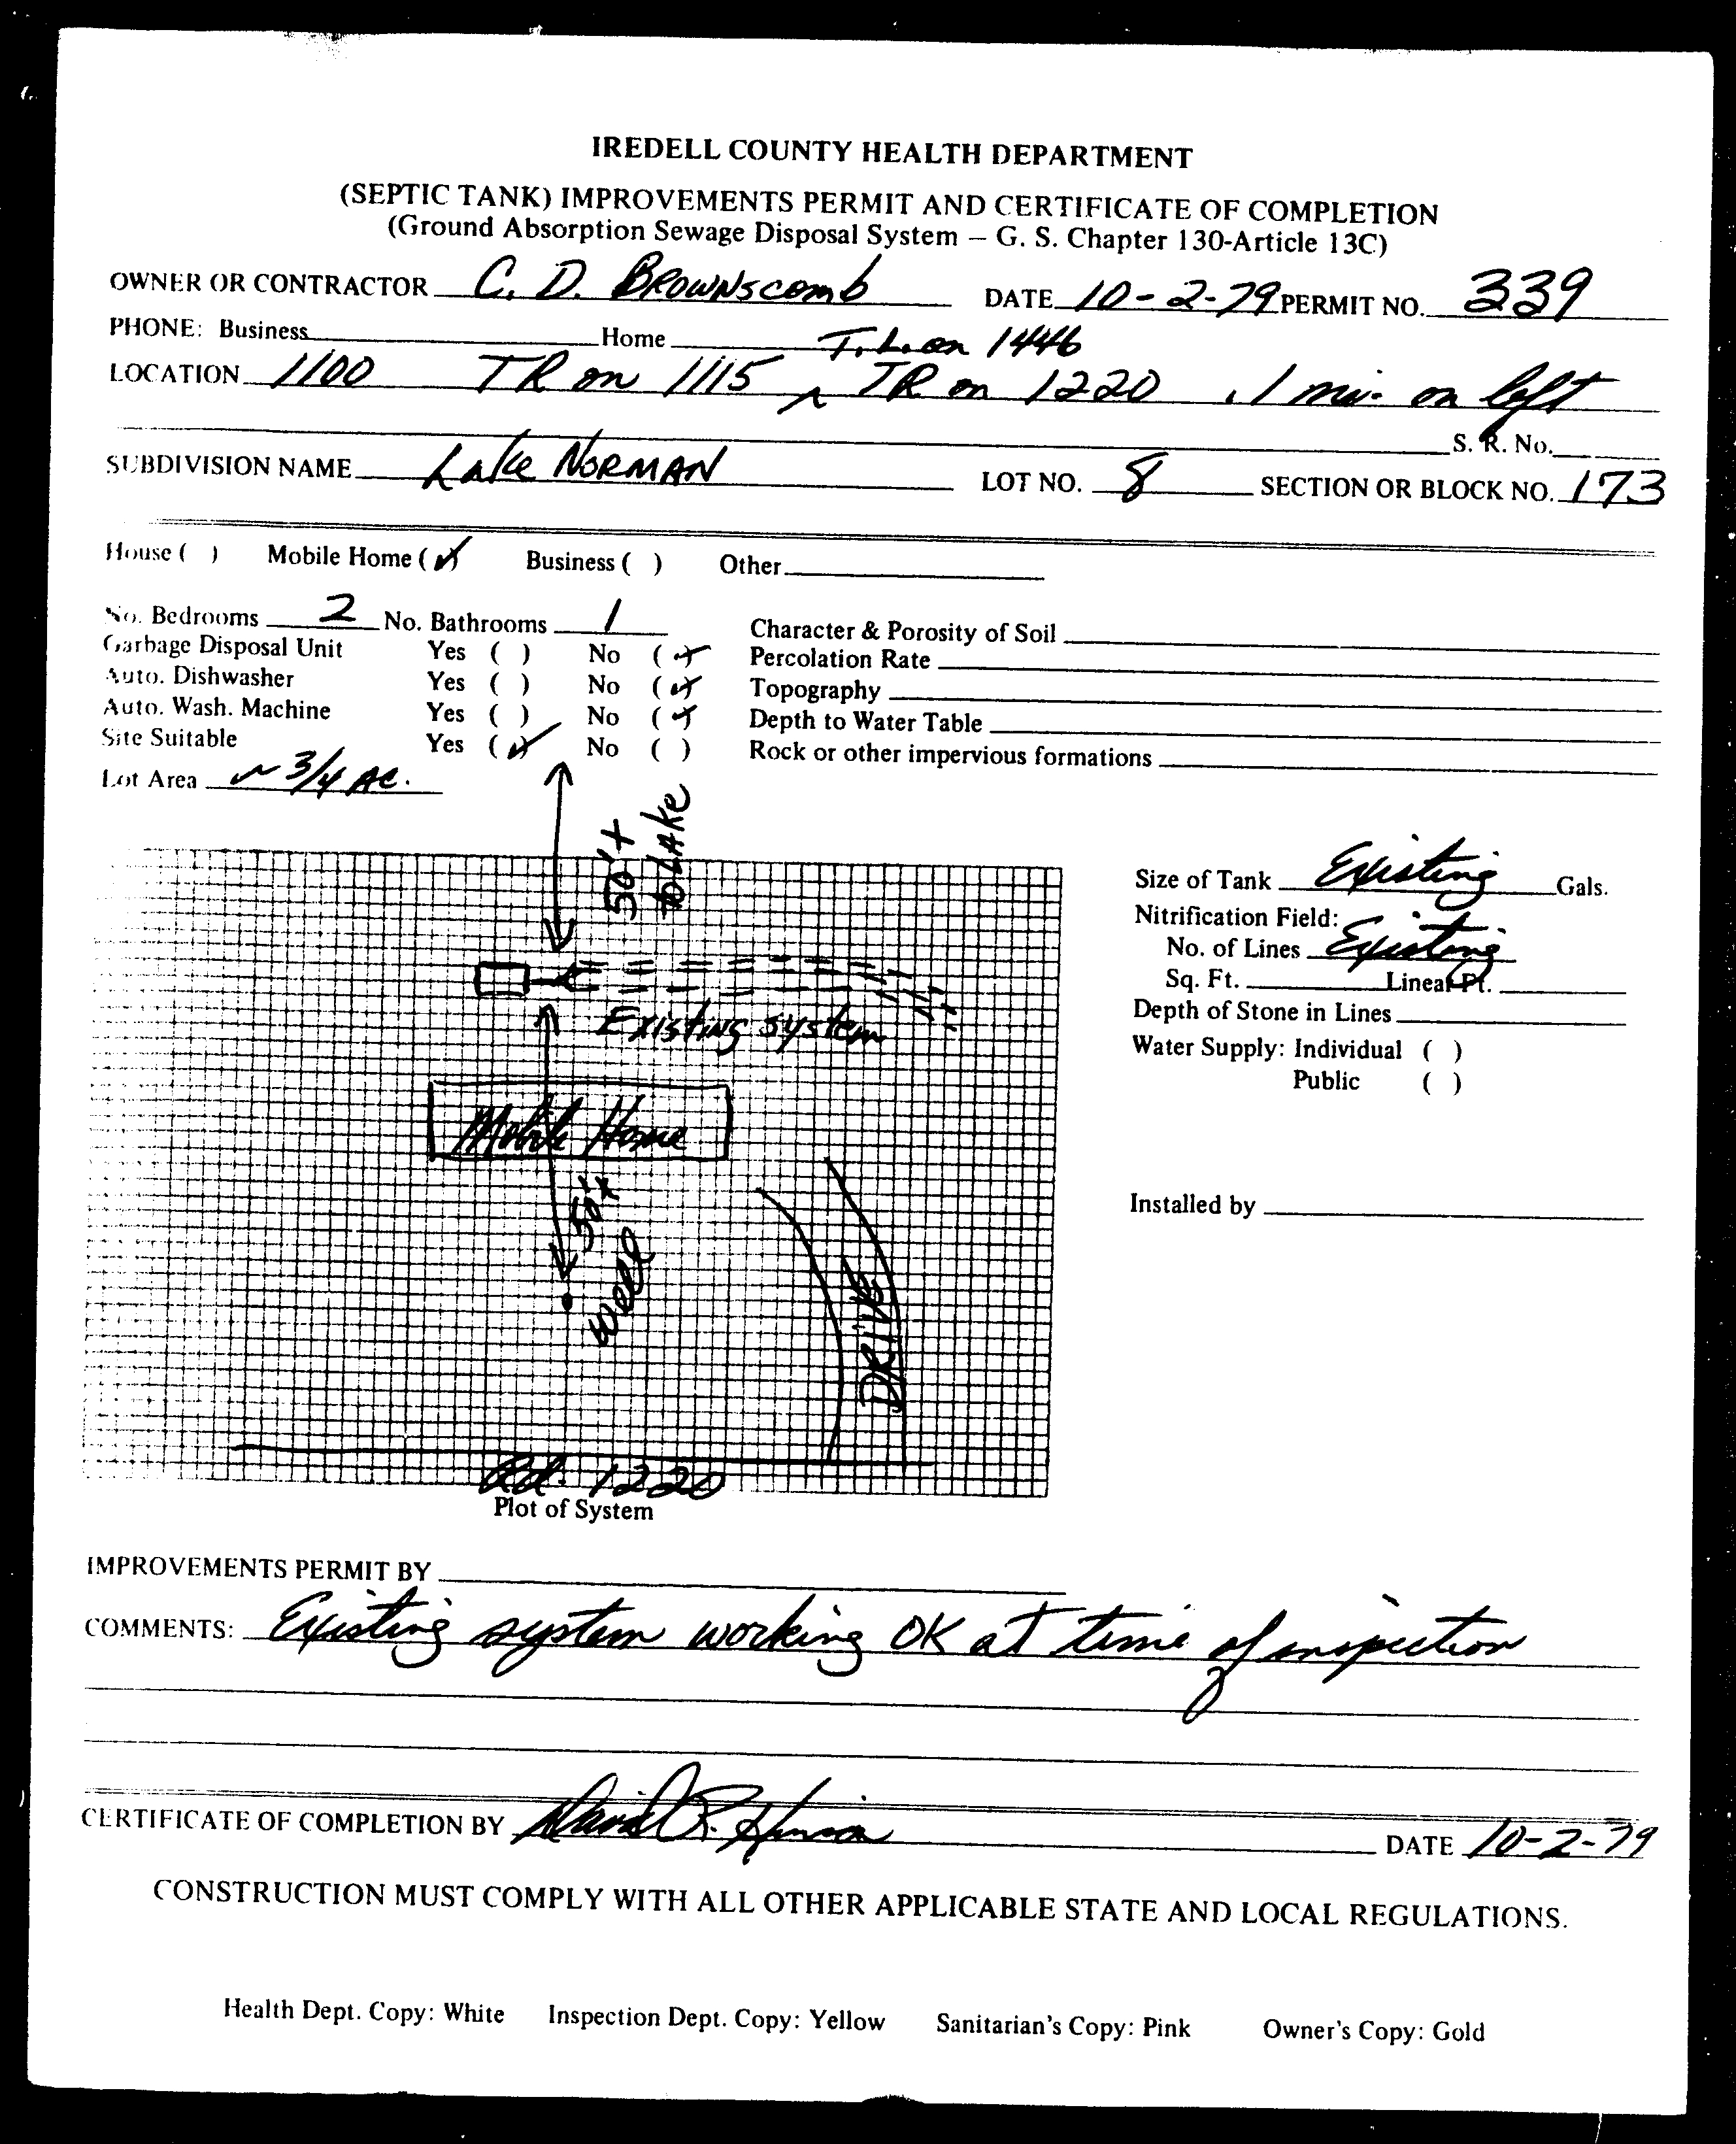 IREDELL COUNTY HEALTH DEPARTMENT
(SEPTIC TANK) IMPROVEMENTS PERMIT AND CERTIFICATE OF COMPLETION
(Ground Absorption Sewage Disposal System – G. S. Chapter 130-Article 13C)
OWNER OR CONTRACTOR C. D. BROWNSCOMB DATE 10-2-79 PERMIT NO. 339
PHONE: Business Home
T.L. on 1446
LOCATION 1100 TR on 1115 ^ TR on 1220 .1 mi. on left
S. R. No.
SUBDIVISION NAME Lake NORMAN LOT NO. 8 SECTION OR BLOCK NO. 173
House ( ) Mobile Home (✓) Business ( ) Other
No. Bedrooms 2 No. Bathrooms 1 Character & Porosity of Soil
Garbage Disposal Unit Yes ( ) No (✓) Percolation Rate
Auto. Dishwasher Yes ( ) No (✓) Topography
Auto. Wash. Machine Yes ( ) No (✓) Depth to Water Table
Site Suitable Yes (✓) No ( ) Rock or other impervious formations
Lot Area ~ 3/4 AC.
50'+
to LAKE
Size of Tank Existing Gals.
Nitrification Field:
No. of Lines Existing
Sq. Ft. Lineal Ft.
Existing system
Depth of Stone in Lines
Water Supply: Individual ( )
Public ( )
Mobile Home
50'+
Well
Installed by
DRIVE
Rd. 1220
Plot of System
IMPROVEMENTS PERMIT BY
COMMENTS: Existing system working OK at time of inspection
CERTIFICATE OF COMPLETION BY David R. DATE 10-2-79
CONSTRUCTION MUST COMPLY WITH ALL OTHER APPLICABLE STATE AND LOCAL REGULATIONS.
Health Dept. Copy: White Inspection Dept. Copy: Yellow Sanitarian's Copy: Pink Owner's Copy: Gold